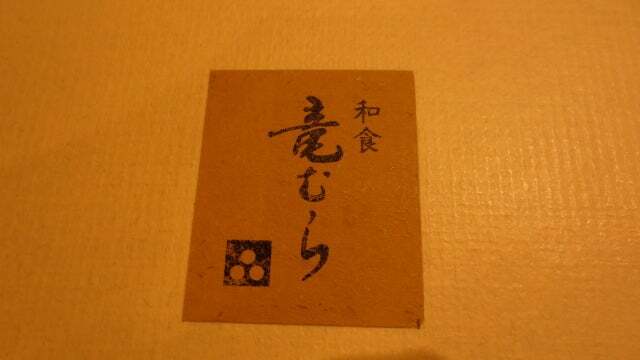 和食
竜むら